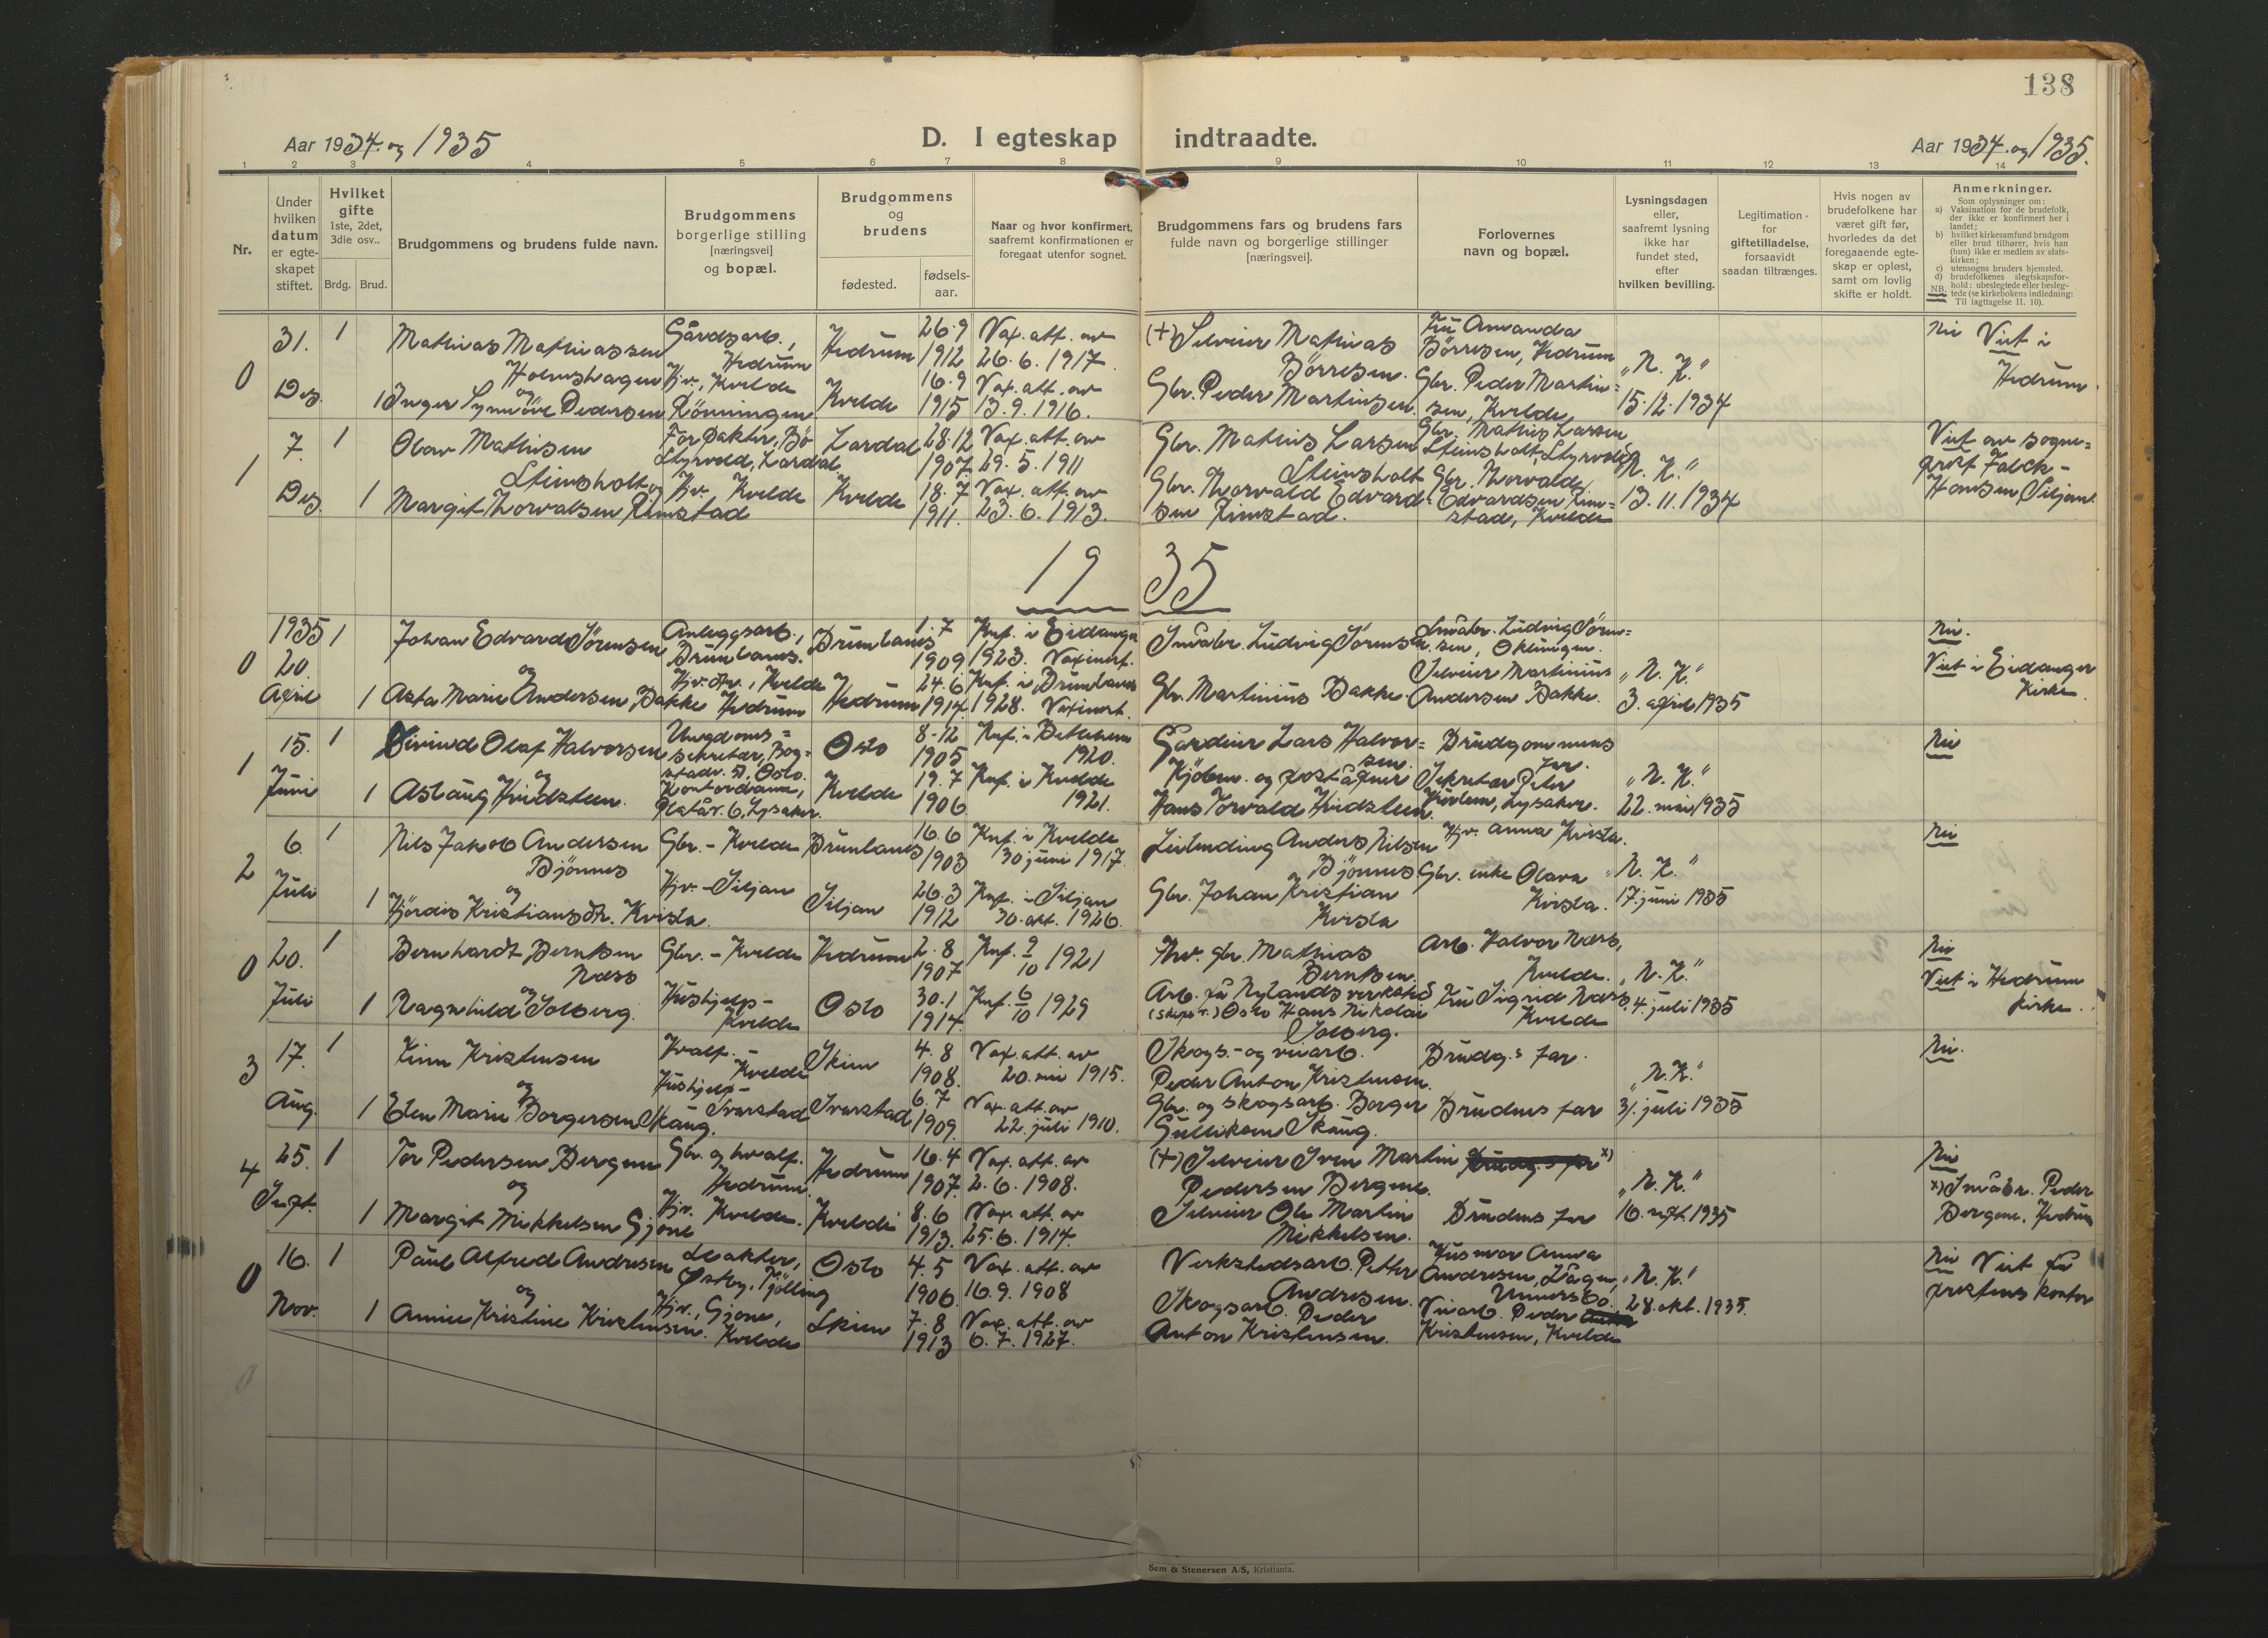 138
Aar 1934. og 1935
D. I egteskap indtraadte.
Aar 1934. og 1935.
1 2 3 4 5 6 7 8 9 10 11 12 13 14
Nr.
Under hvilken datum er egte-skapet stiftet.
Hvilket gifte
1ste, 2det, 3die osv..
Brdg. Brud.
Brudgommens og brudens fulde navn.
Brudgommens borgerlige stilling [næringsvei] og bopæl.
Brudgommens og brudens
fødested.
fødsels-aar.
Naar og hvor konfirmert,
saafremt konfirmationen er
foregaat utenfor sognet.
Brudgommens fars og brudens fars
fulde navn og borgerlige stillinger
[næringsvei].
Forlovernes
navn og bopæl.
Lysningsdagen
eller,
saafremt lysning
ikke har
fundet sted,
efter
hvilken bevilling.
Legitimation
for
giftetilladelse,
forsaavidt
saadan tiltrænges.
Hvis nogen av
brudefolkene har
været gift før,
hvorledes da det
foregaaende egte-
skap er opløst,
samt om lovlig
skifte er holdt.
Anmerkninger.
Som oplysninger om:
a) Vaksination for de brudefolk,
der ikke er konfirmert her i
landet;
b) hvilket kirkesamfund brudgom
eller brud tilhører, hvis han
(hun) ikke er medlem av stats-
kirken;
c) utensogns bruders hjemsted.
d) brudefolkenes slegtskapsfor-
hold: ubeslegtede eller besleg-
tede (se kirkebokens indledning:
Til iagttagelse II. 10).
NB.
0
31. Des.
1
Mathias Mathiassen
Holmshagen
og
1 Inger Synnöve Pedersen
Gårdsarb.,
Hedrum
Hjv., Kvelde
Rönningen
Hedrum
Kvelde
26.9
1912
16.9
1915
Vax. att. av
26.6.1917.
Vax. att. av
13.9.1916.
(+) Selveier Mathias
Börresen.
Gbr. Peder Martinsen.
Fru Amanda
Börresen, Hedrum
Gbr. Peder Martin=
sen, Kvelde
"N. K."
15.12.1934
Nei Viet i
Hedrum.
1
7. Des.
1
Olav Mathisen
Steinsholt
og
1 Margit Thorvalsen Rimstad
Forpakter, Bö
Styrvold, Lardal
Hjv. Kvelde
Lardal
Kvelde
28.12
1907
18.7
1911.
Vax. att. av
29.5.1911
Vax. att. av
23.6.1913.
Gbr. Mathis Larsen
Steinsholt
Gbr. Thorvald Edvard-
sen Rimstad.
Gbr. Mathis Larsen
Steinsholt, Styrvold
Gbr. Thorvald
Edvardsen Rim=
stad, Kvelde
"N. K."
13.11.1934
Viet av sogne=
prest Falck-
Hansen, Siljan.
1935
0
1935
20. April
1
Johan Edvard Sörensen
og
1 Asta Marie Andersen Bakke
Anleggsarb.,
Brunlanes.
Hjv. dtr., Kvelde
Hedrum
Brunlanes
Hedrum
1.7
1909
24.6
1914.
Knf. i Eidanger
1923. Vaxinert.
Knf. i Brunlanes
1928. Vaxinert.
Småbr. Ludvig Sörensen.
Gbr. Martinius Bakke.
Småbr. Ludvig Sören=
sen, Oklungen.
Selveier Martinius
Andersen Bakke.
"N. K."
3. april 1935
Nei.
Viet i Eidanger
Kirke.
1
15. Juni
1
Eivind Olaf Halvorsen
og
1 Aslaug Hvidsteen.
Ungdoms=
sekretær, Bog=
stadv. 51, Oslo.
Kontordame,
Platåv. 6, Lysaker.
Oslo
Kvelde
8.12
1905
19.7
1906
Knf. i Betlehem
1920.
Knf. i Kvelde
1921.
Gårdeier Lars Halvor=
sen.
Kjöbm. og poståpner
Hans Torvald Hvidsteen.
Brudgommens
far.
Sekretær Peter
Lysaker.
"N. K."
22. mai 1935
Nei
2
6. Juli
1
Nils Jakob Andersen
Bjönnes
og
1 Hjördis Kristiansdtr. Kvisla.
Gbr. - Kvelde
Hjv. - Siljan
Brunlanes
Siljan
16.6
1903
26.3
1912
Knf. i Kvelde
30 juni 1917.
Knf. i Siljan
30. okt. 1926.
Leilending Anders Nilsen
Bjönnes
Gbr. Johan Kristian
Kvisla
Hjv. Anna Kvisla.
Gbr. enke Olava
Kvisla.
"N. K."
17. juni 1935
Nei
0
20. Juli
1
Bernhardt Berntsen
Næss
og
1 Ragnhild Solberg.
Gbr. - Kvelde
Hushjelp -
Kvelde
Hedrum
Oslo
2.8
1907
30.1
1914.
Knf. 9/10 1921
Knf. 6/10 1929
Fhv. gbr. Mathias
Berntsen.
Arb. på Nylands verksted
(skips v.) Oslo Hans Nikolai
Solberg.
Arb. Halvor Næss,
Kvelde.
Fru Sigrid Næss,
Kvelde
"N. K."
4. juli 1935
Nei
Viet i Hedrum
kirke.
3
17. Aug.
1
Finn Kristensen
og
1 Elen Marie Borgersen Skaug.
Hvalf. -
Kvelde
Hushjelp -
Svarstad
Skien
Svarstad
4.8
1908.
6.7
1909.
Vax. att. av
20. mai 1915.
Vax. att. av
22. juli 1910.
Skogs- og veiarb.
Peder Anton Kristensen.
Gbr. og skogsarb. Borger
Gulliksen Skaug.
Brudg.s far.
Brudens far
"N. K."
31. juli 1935
Nei.
4
25. Sept.
1
Tor Pedersen Bergene
og
1 Margit Mikkelsen Gjone
Gbr. og hvalf.
Hedrum.
Hjv. Kvelde.
Hedrum
Kvelde
16.4
1907.
8.6
1913.
Vax. att. av
2.6.1908.
Vax. att. av
25.6.1914.
(+) Selveier Sven Martin
Pedersen Bergene.
Selveier Ole Martin
Mikkelsen.
Brudg.s far x)
Brudens far
"N. K."
16. sept. 1935
Nei
x) Småbr. Peder
Bergene, Hedrum
0
16. Nov.
1
Paul Alfred Andresen
og
1 Annie Kristine Kristensen.
Slakter,
Østby, Tjölling
Hjv., Gjone,
Kvelde
Oslo
Skien
4.5
1906.
7.8
1913
Vax. att. av
16.9.1908
Vax. att. av
6.7.1927.
Verkstedsarb. Petter
Andresen.
Skogsarb. Peder
Anton Kristensen.
Husmor Anna
Andresen, Lågen,
Veiarb. Peder
Kristensen, Kvelde
"N. K."
28. okt. 1935.
Nei Viet på
prestens kontor
Sem & Stenersen A/S, Kristiania.